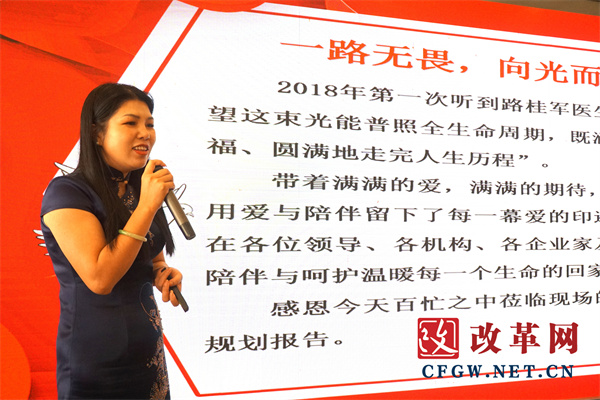 一路无畏，向光而
2018年第一次听到路桂军医生
望这束光能普照全生命周期，既
福、圆满地走完人生历程”。
带着满满的爱，满满的期待，
用爱与陪伴留下了每一幕爱的印
在各位领导、各机构、各企业家
陪伴与呵护温暖每一个生命的回家
感恩今天百忙之中莅临现场的
规划报告。
改 改革网
CFGW.NET.CN